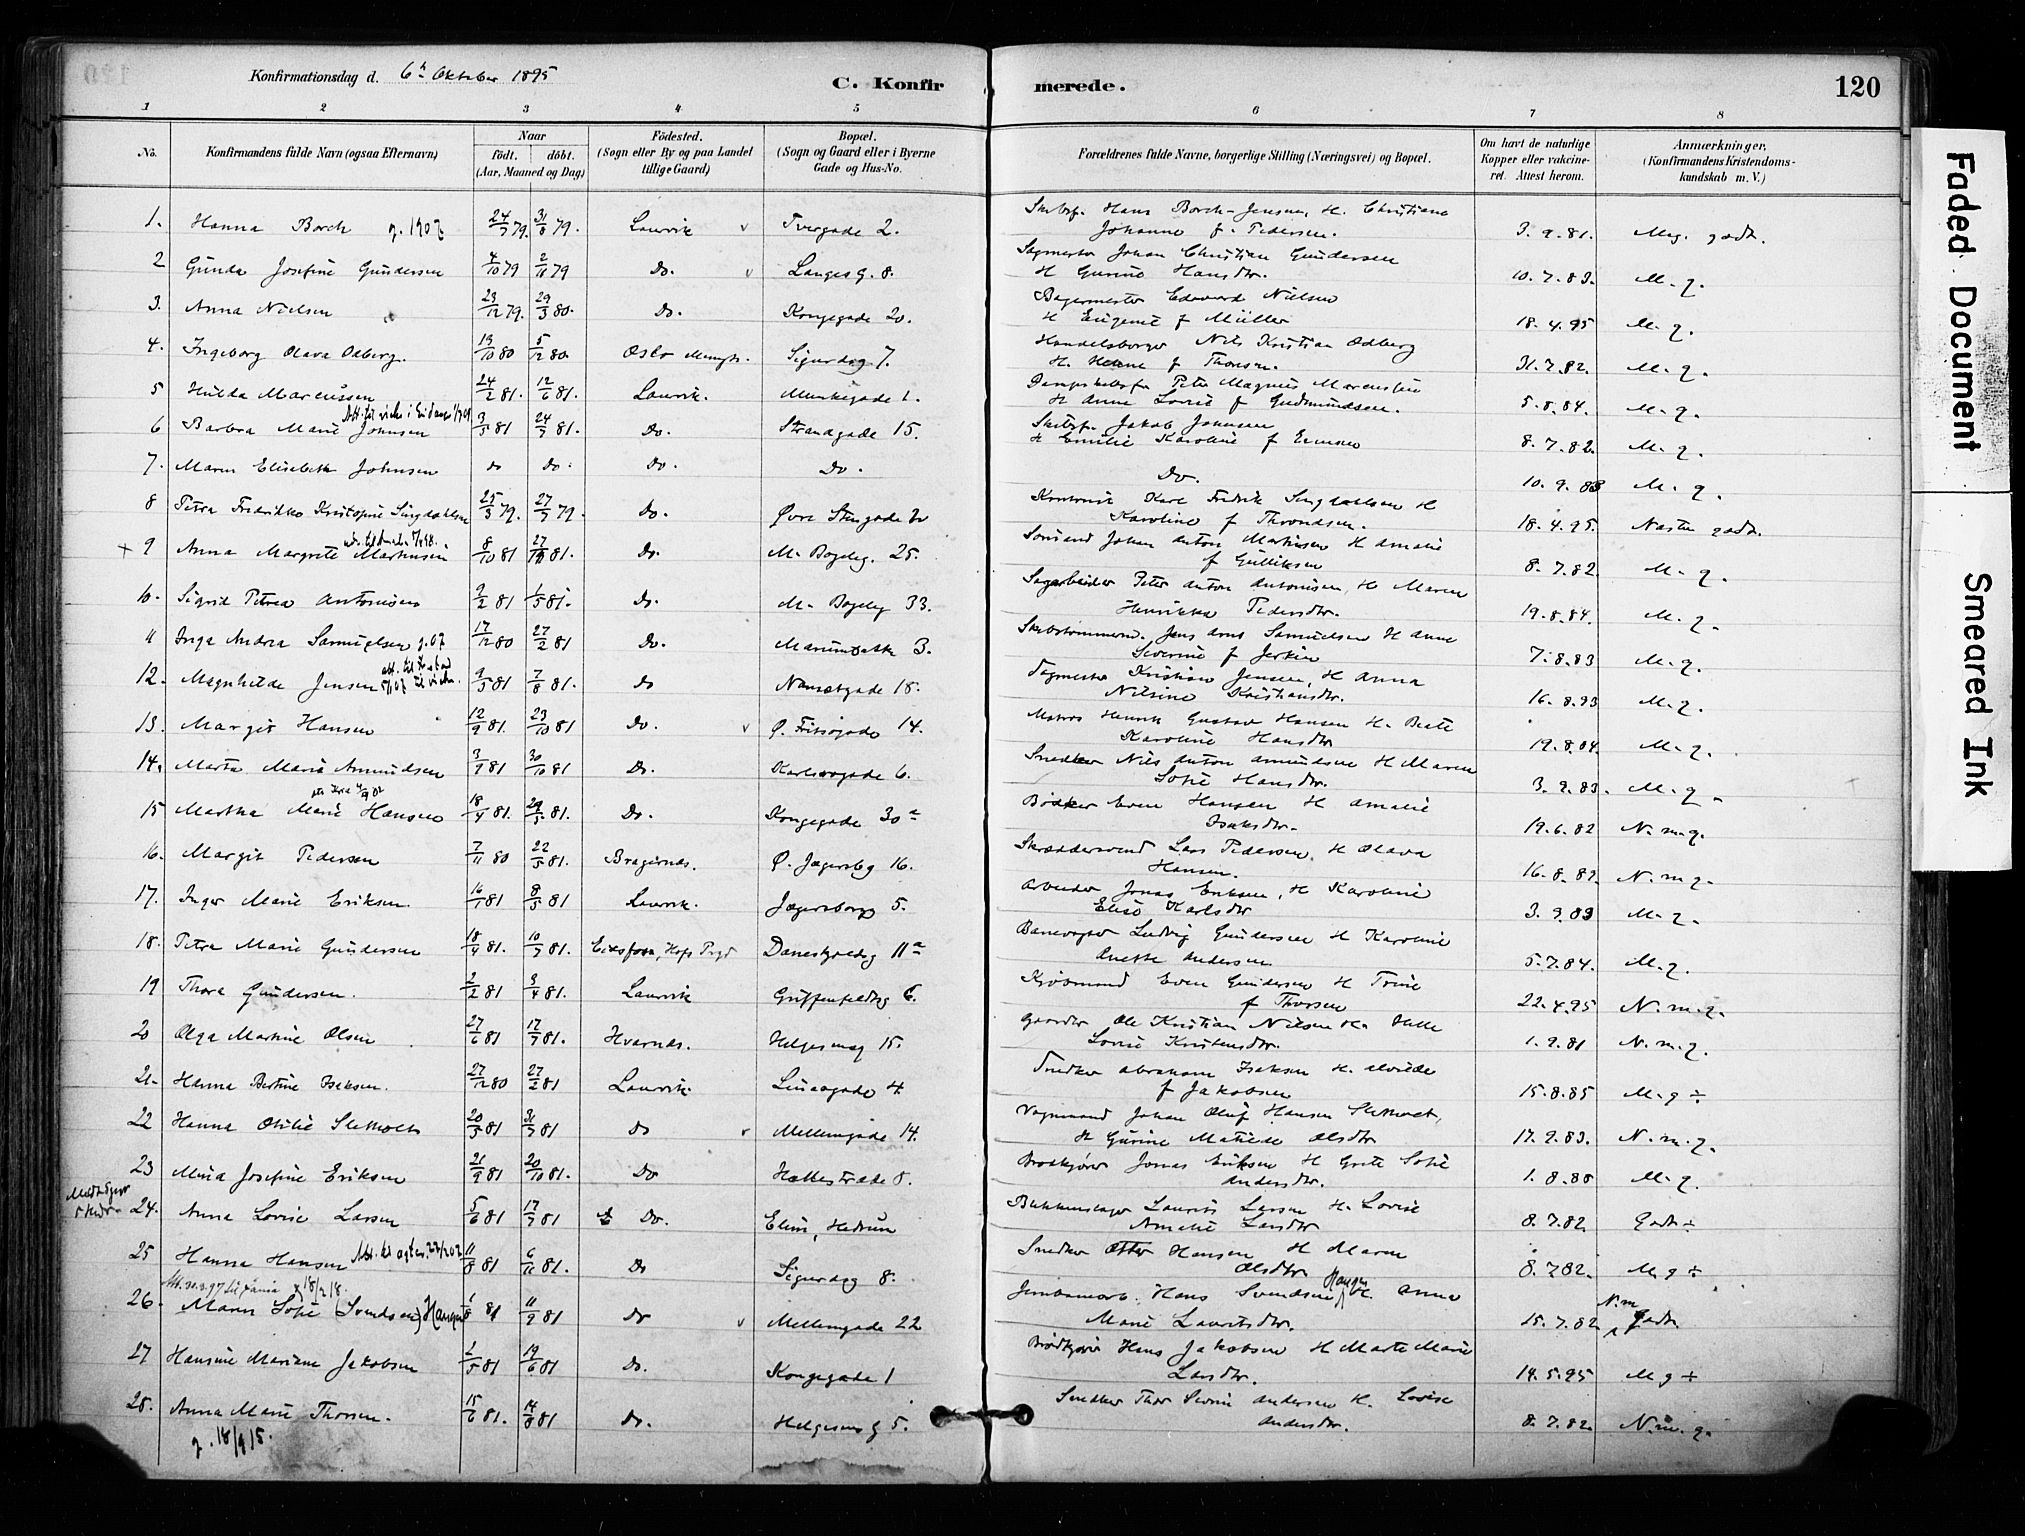 Konfirmationsdag d. 6h Oktober 1895
C. Konfir
merede.
120
1 2 3 4 5 6 7 8
No.
Konfirmandens fulde Navn (ogsaa Efternavn)
Naar
födt. döbt.
(Aar, Maaned og Dag)
Födested.
(Sogn eller By og paa Landet
tillige Gaard)
Bopæl.
(Sogn og Gaard eller i Byerne
Gade og Hus-No.
Forældrenes fulde Navne, borgerlige Stilling (Næringsvei) og Bopæl.
Om havt de naturlige
Kopper eller vaccine-
ret. Attest herom.
Anmærkninger.
(Konfirmandens Kristendoms-
kundskab m. V.)
1. Hanna Borch g. 1907 24/7 79. 31/8 79. Laurvik v Tvergade 2. Skibsf. Hans Borch-Jensen, H. Christiane
Johanne f. Pedersen. 3.9.81. Meg. godt.
2 Gunda Josefine Gundersen 4/10 79 2/11 79 Do. v Langesg. 8. Sagmester Johan Christian Gundersen
H Gurine Hansdtr. 10.7.83. M. g.
3. Anna Nielsen 23/12 79. 29/3 80. Do. Kongegade 20. Bagermester Edevard Nielsen
H Eugenie f Müller 18.4.95 M. g.
4. Ingeborg Olava Odberg. 19/10 80 5/12 80. Oslo Sigurdsg 7. Handelsborger Nils Kristian Odberg
H. Helene f Thorsen. 31.7.82. M. g.
5 Hulda Marcussen 24/2 81. 12/6 81. Laurvik. Munkegade 1. Dampskibsf. Peter Magnus Marcussen
H Anne Lovise f Gudmundsen. 5.8.84. M. g.
6 Barbra Marie Johnsen 3/5 81 24/7 81. Do. Strandgade 15. Skibsf. Jakob Johnsen
H Emilie Karoline f 8.7.82. M. g.
7. Maren Elisebeth Johnsen do Do. Do. Do. Do. 10.9.83 M. g.
8 Petra Fredrikke Kristofine Singdahlsen 25/3 79. 27/7 79. Do. Øvre Stengade Karl Fredrik Singdahlsen H
Karoline f Throndsen. 18.4.95. Næsten godt.
+ 9 Anna Margrete Martinsen 8/10 81 27/11 81. Do. M. Bøgeleg. 25. Sømand Johan Anton Martinsen H Amalie
f Gulliksen 8.7.82. M. g.
10. Sigrid Petrea Antonisen 9/2 81 1/5 81. Do. M. Bøgeleg 33. Sagarbeider Peter Anton Antonisen, H Maren
Henrikke Pedersdtr. 19.8.84. M. g.
11 Inga Andrea Samuelsen g. 07 17/12 80 27/2 81 Do. 3. Skibstømmerm. Jens Samuelsen H Anne
Severine f 7.8.83 M. g.
12. Magnhilde Jensen 9/5 81 7/8 81. Do Nansetgade 18. Kristian Jensen, H Anna
Nilsine Kristiansdtr. 16.8.93 M. g.
13. Margit Hansen 12/9 81. 23/10 81 Do. v Ø. Fritzøgade 14. Matros Henrik Gustav Hansen H. Beate
Karoline Hansdtr 19.8.84. M. g.
14. Marta Marie Amundsen 3/9 81 30/10 81 Do. Karlsrogade 6. Snedker Nils Anton Amundsen H Maren
Sofie Hansdtr. 3.9.83. M. g.
15 Martha Marie Hansen 18/4 81. 29/5 81. Do. Kongegade 30a Bødker Even Hansen H Amalie
Isaksdtr. 19.6.82 N. m. g.
16. Margit Pedersen 7/11 80 22/5 81. Bragernæs. Ø. Jegersbg 16. Skræddersvend Lars Pedersen, H Olava
Hansen. 16.8.82. N. m. g.
17. Inger Marie Eriksen. 16/1 81 8/5 81 Laurvik. Jegersborg 5. Arbeider Jonas Eriksen, H Karoline
Elise Karlsdtr 3.9.83 M. g.
18. Petra Marie Gundersen 18/4 81. 10/7 81. Eidsfoss, Hofs Prgd Daneskjoldsg 11a Banevogter Ludvig Gundersen H Karoline
Anette Andersen 5.7.84. M. g.
19 Thora Gundersen. 2/2 81 3/4 81. Laurvik Griffenfeldtsg 6. Even Gundersen H Trine
f Thorsen 22.4.95 N. m. g.
20 Olga Martine Olsen 27/6 81 17/7 81. Hvarnæs. Helgesensg 15. Gaardbr Ole Kristian Nilsen H. Helle
Lovise Kristensdtr. 1.9.81 N. m. g.
21. Hanna Bertine Isaksen. 27/12 80 27/2 81 Laurvik. Linaaegade 4. Snedker Abraham Isaksen H. Alvilde
f Jakobsen 15.8.85 M. g ÷
22 Hanna Otilie Sletholt 20/5 81 31/7 81 Do v Mellemgade 14. Vognmand Johan Oluf Hansen Sletholt,
H Gurine Matilde Olsdtr 17.9.83. N. m. g.
23 Mina Josefine Eriksen 21/9 81 20/10 81. Do Hattestræde 8. Brødkjører Jonas Eriksen H Grete Sofie
Andersdtr. 1.8.88 M. g.
24. Anna Lovise Larsen 5/6 81 17/7 81 Do. Elim, Hedrum Laurits Larsen H. Lovise
Amalie Larsdtr 8.7.82. Godt ÷
25 Hanna Hansen 11/8 81 6/11 81. Do Sigurdsg 8. Snedker Otter Hansen H Maren
Olsdtr 8.7.82. M. g ÷
26. Maren Sofie (Svendsen) Haugen 1/8 81 11/9 81 Do v Mellemgade 22 Jernbanearb. Hans Svendsen Haugen H. Anne
Marie Lauritsdtr. 15.7.82. N. m. Godt.
27 Hansine Mariane Jakobsen 2/5 81 19/6 81 Do. Kongegade 1 Brødkjører Hans Jakobsen H Marte Marie
Larsdtr. 14.5.95 M g ÷
28. Anna Marie Thorsen. 15/6 81. 14/8 81 Do. Helgesens g 5. Snedker Thor Andersen H. Lovise
Andersdtr. 8.7.82. N. m. g.
g. 18/9 15.
Faded Document
Smeared Ink